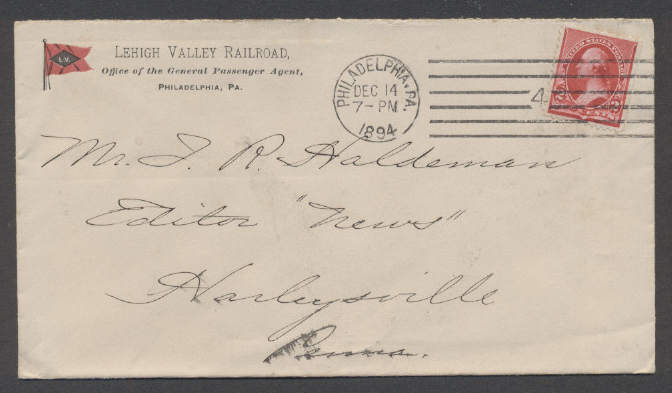 L.V.
LEHIGH VALLEY RAILROAD,
Office of the General Passenger Agent,
PHILADELPHIA, PA.
PHILADELPHIA, PA.
DEC 14
7-PM
1894
4
Mr. I. R. Haldeman
Editor "News"
Harleysville
Penna.